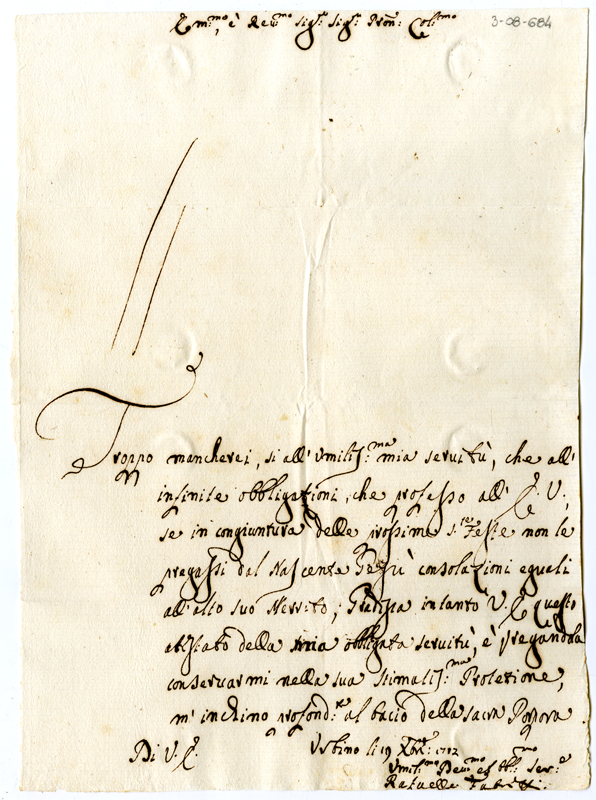 Em:mo, è Reu:mo Sig:r Sig:r Pron: Col:mo
3-08-684
Troppo mancherei, si all' Vmiliss:ma mia seruitù, che all'
infinite obbligazioni, che professo all' E: V:,
se in congiuntura delle prossime S:te Feste non le
pregassi dal Nascente Gesù consolazioni eguali
all'alto suo Merito; Gradisca intanto V: E questo
attestato della mia obligata seruitù, è pregandola
conseruarmi nella sua stimatiss:ma Protezione,
m' inchino profond:te al bacio della sacra Porpora.
Di V: E:
Vrbino li 19 Xbre: 1712
Vmil:mo Deu:mo ed Obl:mo Ser:e